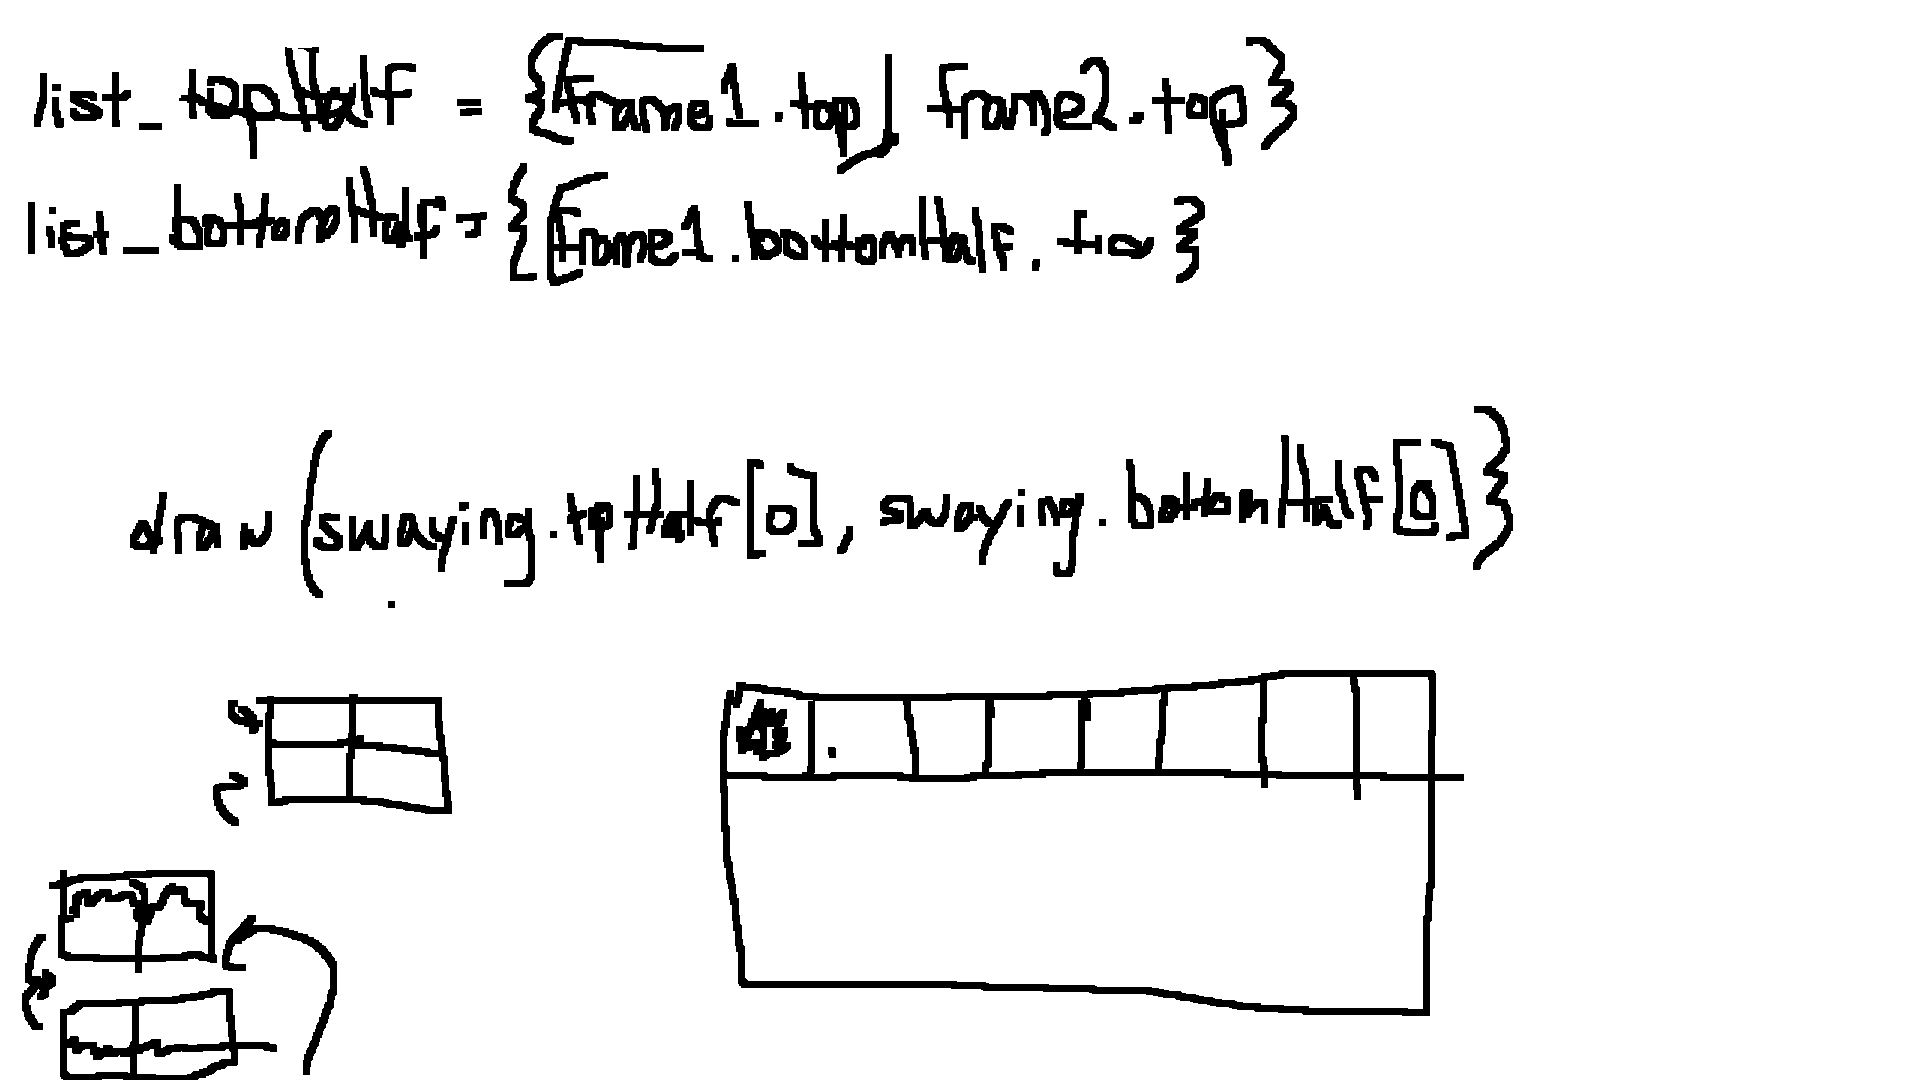 list_topHalf = {[frame1.top] frame2.top}
list_bottomHalf = {[frame1.bottomHalf. }
draw (swaying.topHalf[0], swaying.bottomHalf[0]}